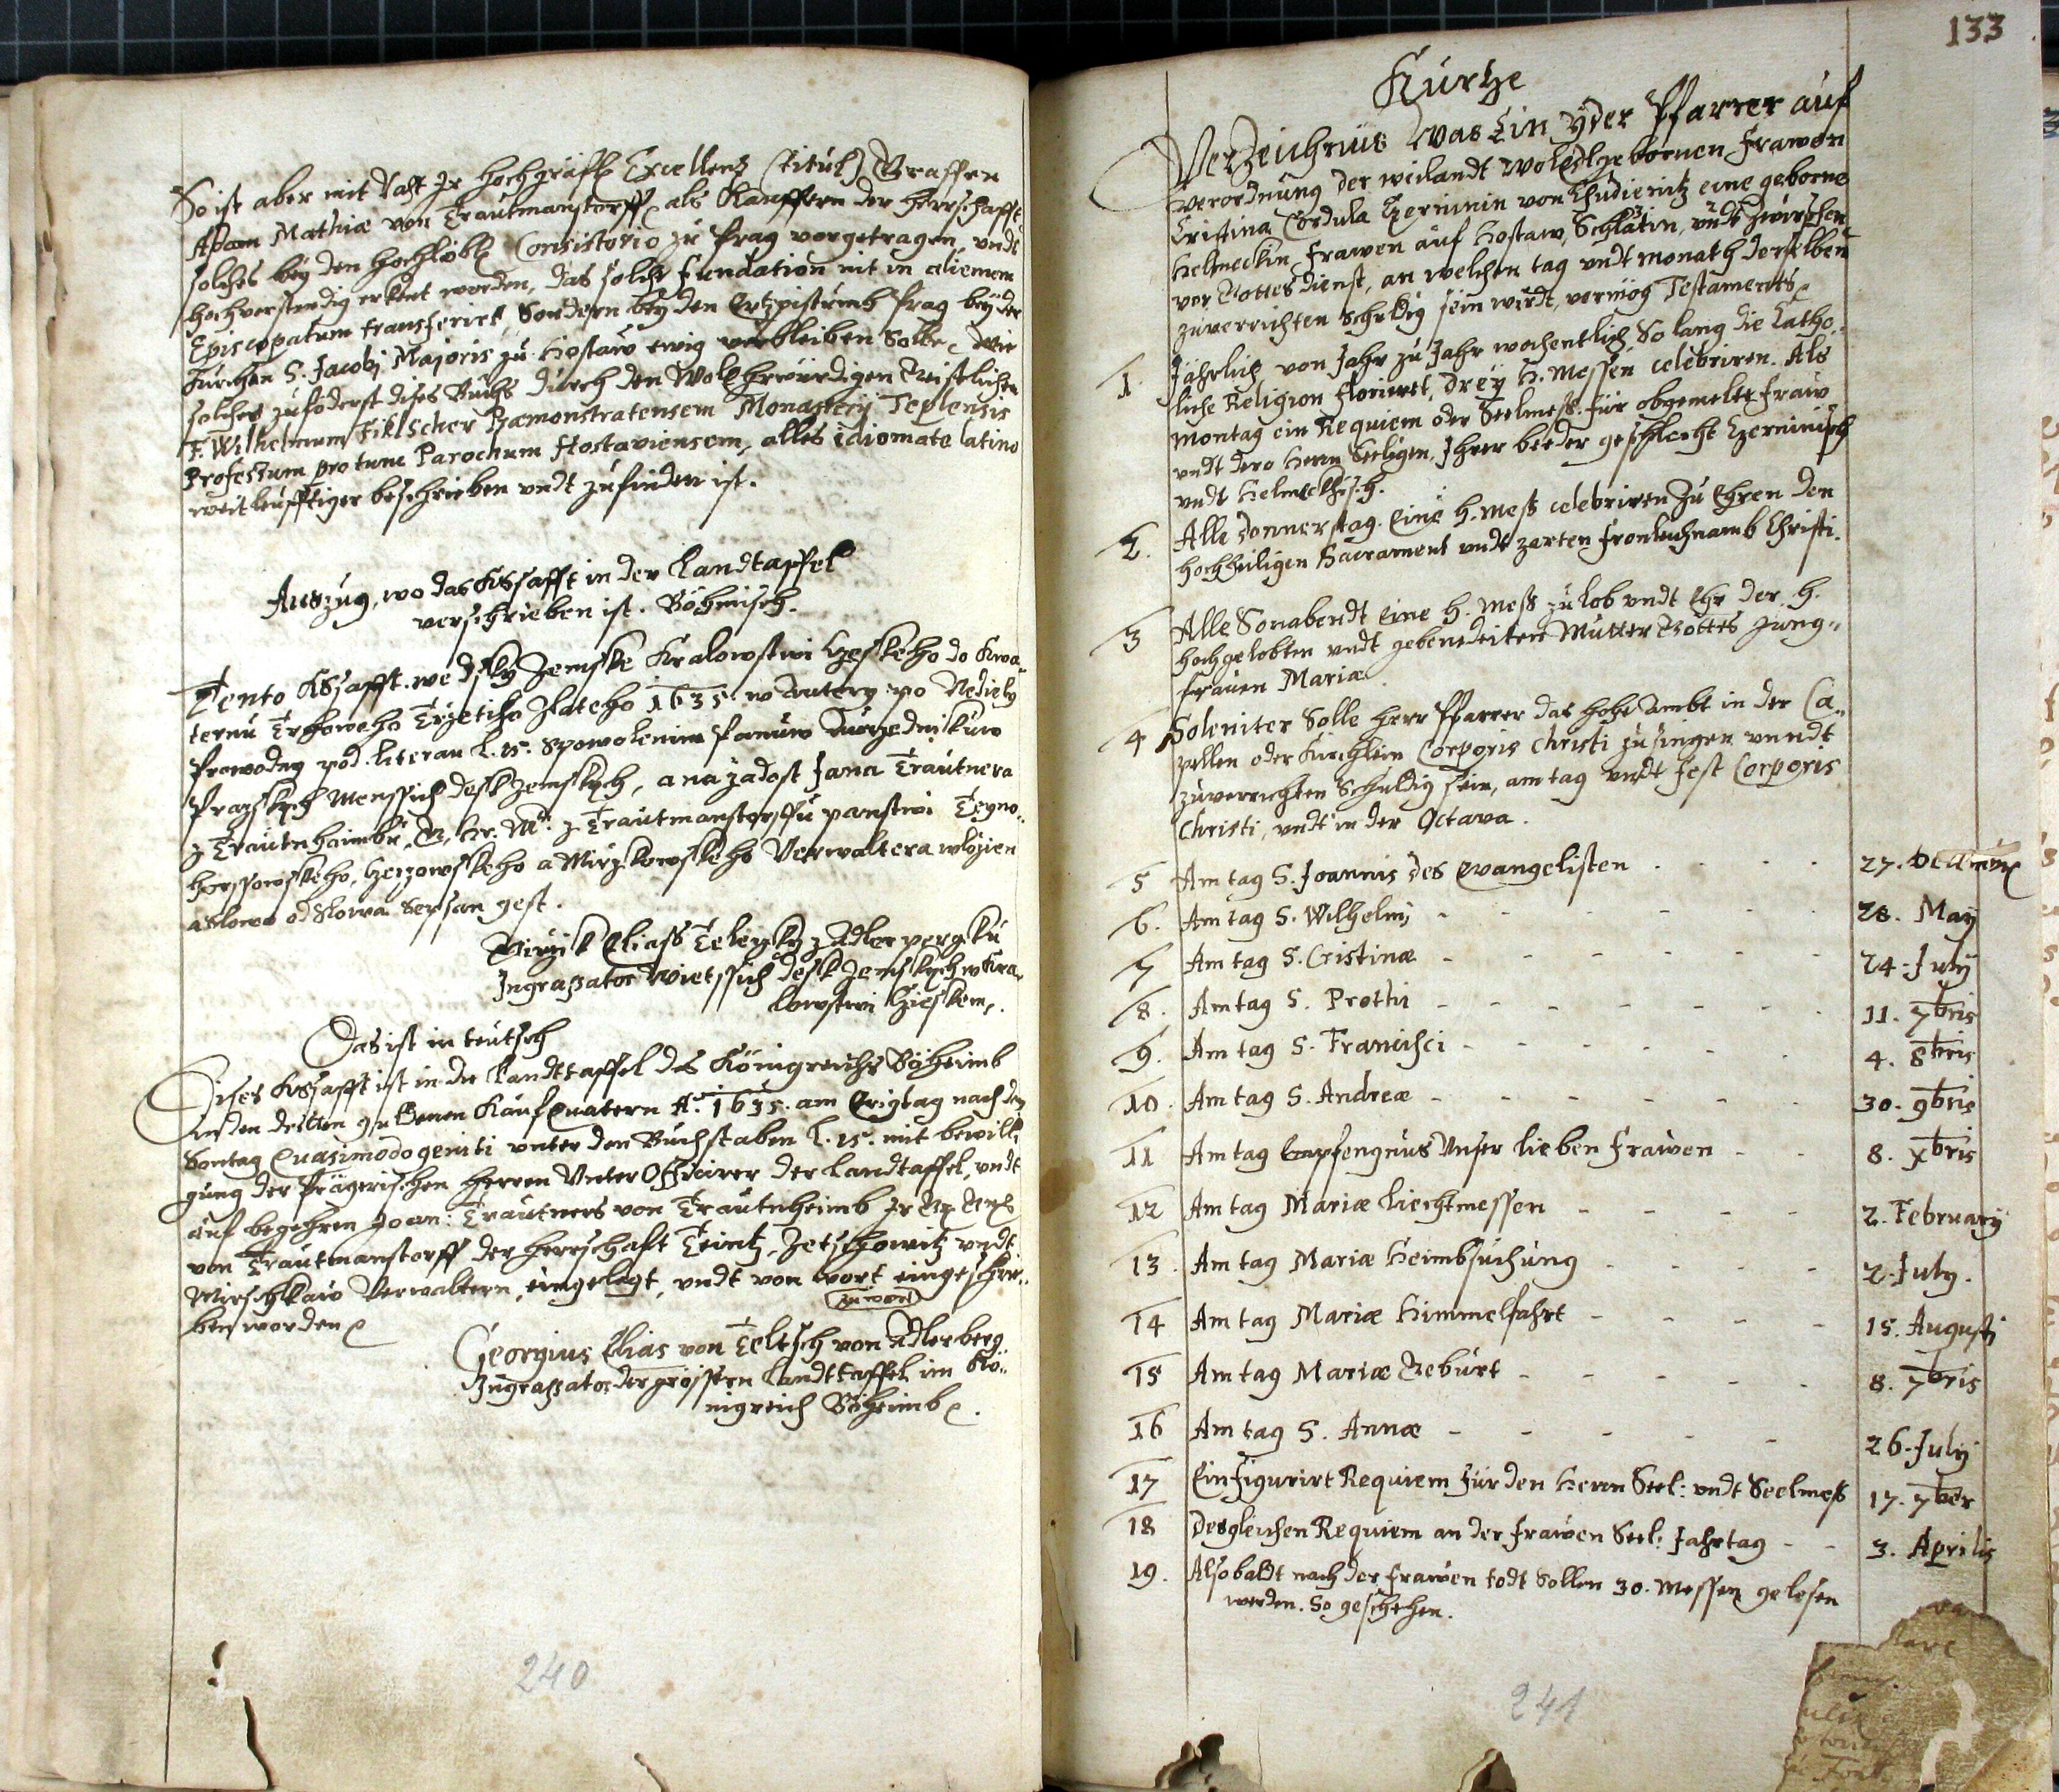 So ist aber mit Rath Ir Hochgräfl. Excellenz (titul) Graffen
Adam Mathiæ von Trautmanstorff als Kauffern der Herrschafft
solches bey den Hochlöbl. Consistorio zu Prag vorgetragen, undt
hochverstendig erkent worden, das solche fundation nit in alienem
Episcopatum transferirt, Sondern bey den Ertzpistumb Prag bey der
Kürchen S. Jacobj Majoris zu Hostaw ewig verbleiben Solle, wie
solches zuföderst dises Buchs durch den Wolehrwürdigen Geistlichen
F. Wilhelmum Fiklscher Præmonstratensem Monasterij Teplensis
Professum pro tunc Parochum Hostaviensem, alles idiomate latino
weitleufftiger beschrieben undt zufinden ist.
Auszug, wo das Kssafft in der Landtaffel
verschrieben ist. Böhmisch.
Tento Kssafft we dsky Zemske Kralowstwi Czeskeho do Kwa„
ternu Trhoweho Trzetiho Zlateho 1635. w Autery po Nedieli
Prowodny pod literau L. 15. Spowolenim Panuw Aurzednikuw
Prazskych Menssich desk zemskych, a na zadost Jana Trautnera
z Trautnhaimbu, Hr. M. z Trautmanstorffu panstwi Teyno„
horssowskeho, Czeczowskeho a Mirzkowskeho Verwaltera wlozien
a Slowo od Slowa Sepsan gest.
Girzik Eliass Teleczky z Adlerpergku
Ingrossator Wietssich desk Zemskych w Kra„
lowstwi Czieskem.
Das ist in teutsch
Dises Kssafft ist in die Landtaffel des Königreichs Böheimb
in den dritten guldenen Kauf Quatern A. 1635. am Erigtag nach den
Sontag Quasimodogeniti unter den Buchstaben L. 15. mit bewilli„
gung der Prägerischen Herren Unter Officirer der Landtaffel, undt
auf begehren Joan: Trautners von Trautnheimb Ir
von Trautmanstorff der Herrschafft Teinitz, Zetschowitz undt
Mirschkaw Verwaltern, eingelegt, undt von wort eingeschrie„
zu wort
ben worden
Georgius Elias von Teltsch von Adlerberg
Ingrossator der grössern Landttaffel im Kö„
nigreich Böheimb.
240
133
Kurtze
Verzeichnüs Was Ein Yder Pfarrer auf
verordnung der weilandt Wol Edlgebornen Frawen
Cristina Cordula Czerninin von Chudienitz eine geborne
Helmeckin, Frawen auf Hostaw, Schlätin, undt Zwirschen
vor Gottesdienst, an welchen tag undt monath derselben
zuverrichten Schuldig sein wirdt, vermög Testaments.
1. Jährlich von Jahr zu Jahr wochentlich So lang die Catho„
liche Religion floriret, drey H. Messen celebriren. Als
Montag ein Requiem oder Seelmess für obgemelte Fraw
undt dero Herrn Seeligen, Ihrer beeder geschlecht Czerninisch
undt Helmeckisch.
2. Alle Donnerstag. Eine H. Mess celebriren Zu Ehren den
Hochheiligen Sacrament undt zarten fronleichnamb Christi.
3 Alle Sonabendt Eine H. Mess zu lob undt Ehr der H.
hochgelobten undt gebenedeiten Mutter Gottes Jung„
frauen Mariæ.
4 Soleniter Solle Herr Pfarrer das hohe Ambt in der Ca„
pellen oder Kirchlein Corporis Christi zu singen unndt
zuverrichten Schuldig sein, am tag undt fest Corporis
Christi, undt in der Octava.
5 Am tag S. Joannis des Evangelisten 27. Decembr.
6. Am tag S. Wilhelmj 28. May
7 Am tag S. Cristinæ 24. July
8. Am tag S. Prothi 11. 7bris
9. Am tag S. Francisci 4. 8bris
10. Am tag S. Andreæ 30. 9bris
11 Am tag Empfengnus Unser lieben Frawen 8. Xbris
12 Am tag Mariæ Liechtmessen 2. February
13. Am tag Mariæ Heimbsuchung 2. July.
14 Am tag Mariæ Himmelfahrt 15. Augustj
15 Am tag Mariæ Geburt 8. 7bris
16 Am tag S. Annæ 26. July
17 Ein figurirt Requiem für den Herrn Seel: undt Seelmess 17. 7ber
18 Desgleichen Requiem an der Frawen Seel: Jahrtag 3. Aprilis
19. Alsobaldt nach der Frawen todt Sollen 30. Messen gelesen
werden. So geschehen.
241